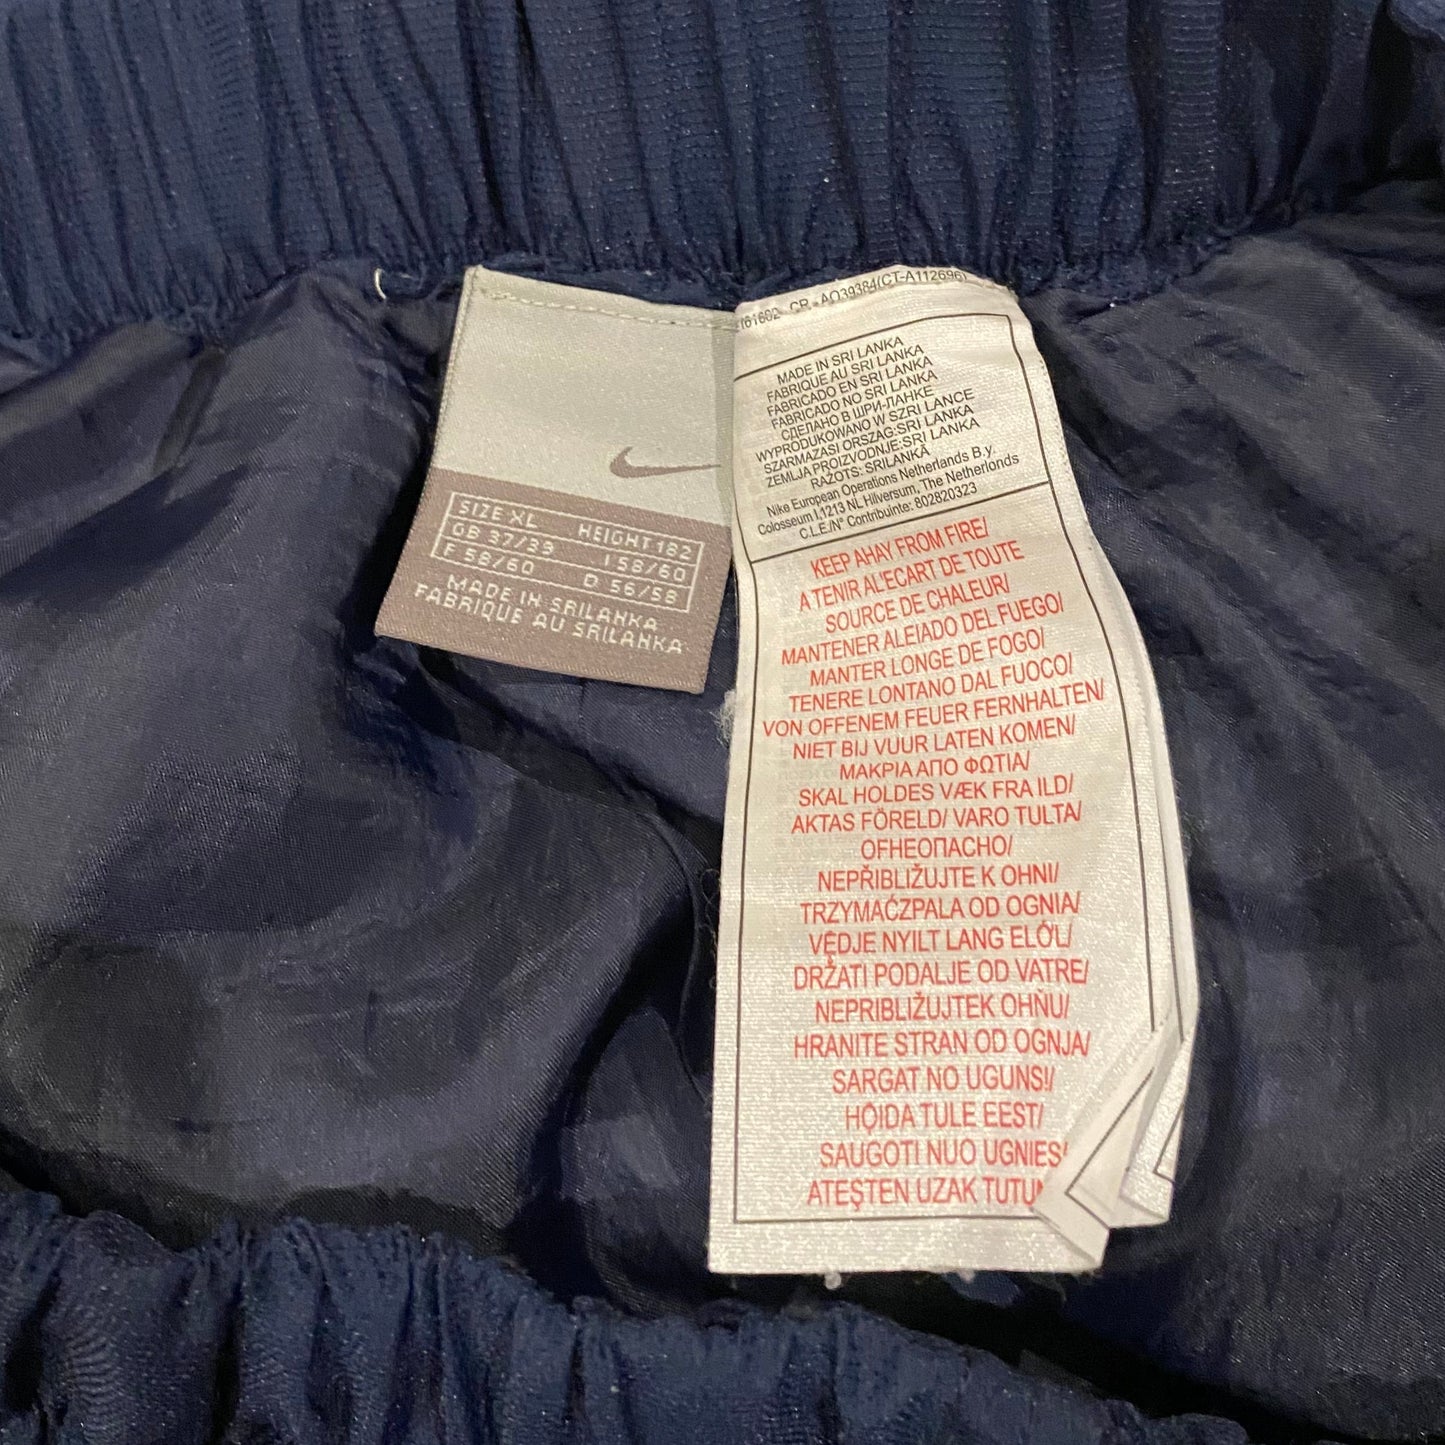 SIZE XL HEIGHT 182
GB 37/39 I 58/60
F 58/60 D 56/58
MADE IN SRILANKA
FABRIQUE AU SRILANKA
161602 CR - AO39384(CT-A112696)
MADE IN SRI LANKA
FABRIQUE AU SRI LANKA
FABRICADO EN SRI LANKA
FABRICADO NO SRI LANKA
СДЕЛАНО В ШРИ-ЛАНКЕ
WYPRODUKOWANO W SZRI LANCE
SZARMAZASI ORSZAG:SRI LANKA
ZEMLJA PROIZVODNJE:SRI LANKA
RAŽOTS: SRILANKĀ
Nike European Operations Netherlands B.y.
Colosseum I,1213 NL Hilversum, The Netherlands
C.L.E./N° Contribuinte: 802820323
KEEP AHAY FROM FIRE/
A TENIR AL'ECART DE TOUTE
SOURCE DE CHALEUR/
MANTENER ALEIADO DEL FUEGO/
MANTER LONGE DE FOGO/
TENERE LONTANO DAL FUOCO/
VON OFFENEM FEUER FERNHALTEN/
NIET BIJ VUUR LATEN KOMEN/
ΜΑΚΡΙΑ ΑΠΟ ΦΩΤΙΑ/
SKAL HOLDES VÆK FRA ILD/
AKTAS FÖRELD/ VARO TULTA/
ОГНЕОПАСНО/
NEPŘIBLIŽUJTE K OHNI/
TRZYMAĆZPALA OD OGNIA/
VĘDJE NYILT LANG ELŐL/
DRŽATI PODALJE OD VATRE/
NEPRIBLIŽUJTEK OHŇU/
HRANITE STRAN OD OGNJA/
SARGAT NO UGUNS!/
HOIDA TULE EEST/
SAUGOTI NUO UGNIES/
ATEŞTEN UZAK